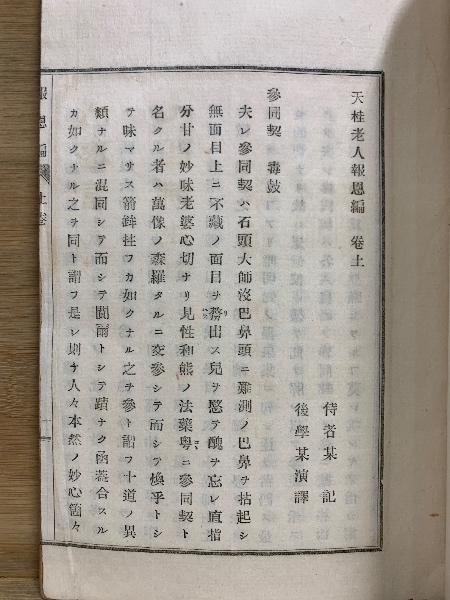 天桂老人報恩編 卷上
侍者某 記
後學某演譯
參同契 毒鼓
夫レ參同契ハ石頭大師沒巴鼻頭ニ難測ノ巴鼻ヲ拈起シ
無面目上ニ不藏ノ面目ヲ務出ス兒ヲ愍テ醜ヲ忘レ直指
分甘ノ妙味老婆心切ナリ見性和熊ノ法藥粤ニ參同契ト
名クル者ハ萬像ノ森羅タルニ交參シテ而シテ煥乎トシ
テ味マサス箭鋒拄フカ如クナル之ヲ參ト謂フ十道ノ異
類ナルニ混同シテ而シテ闘爾トシテ蹟ナク函蓋合スル
カ如クナル之ヲ同ト謂フ是レ則チ人々本然ノ妙心箇々
報恩編 上卷